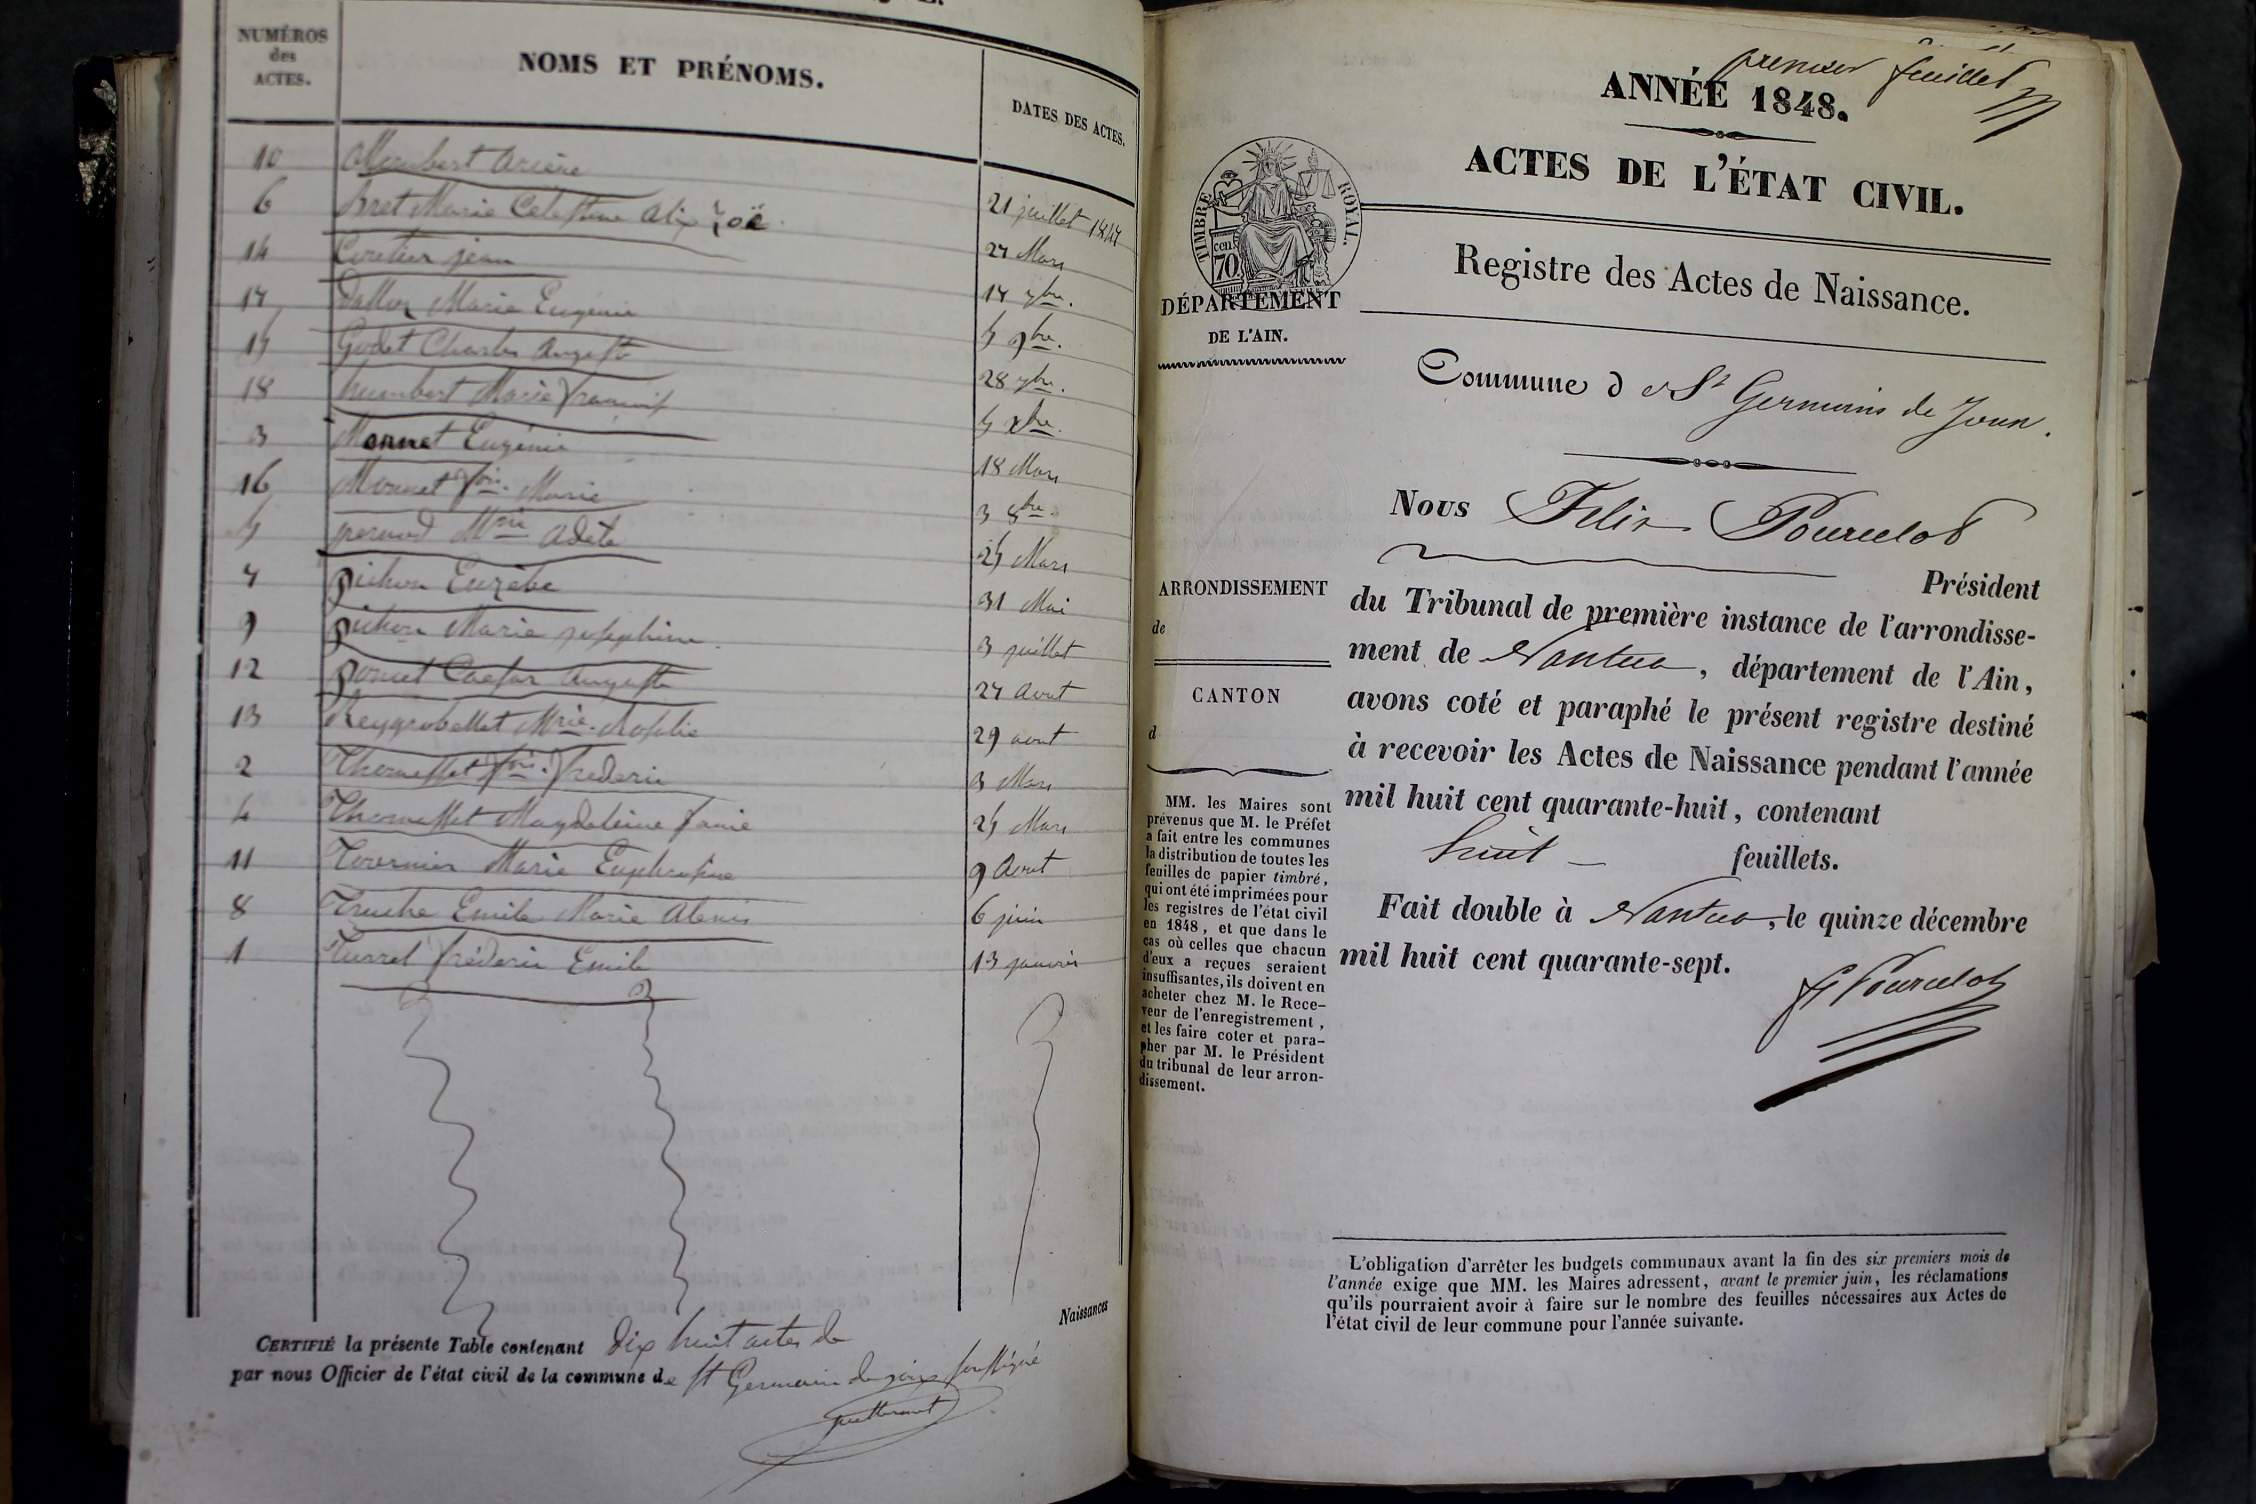 NUMÉROS
des
ACTES.
NOMS ET PRÉNOMS.
DATES DES ACTES.
10 Arsène 21 juillet 1847
6 Bret Marie Célestine Alix Zoë 27 Mars
14 jean 17 7bre.
17 Marie Eugénie 5 9bre.
15 Godet Charles Auguste 28 7bre.
18 humbert Marie françois 5 Xbre.
3 Monnet Eugénie 18 Mars
16 Monnet Marie 3 8bre.
5 pernod Mrie Adèle 25 Mars
7 pichon Euzèbe 31 Mai
9 pichon Marie josephine 3 juillet
12 poncet Caesar Auguste 27 Aout
13 Reygrobellet Mrie Rosalie 29 aout
2 Thomasset fois. frederic 3 Mars
4 Thomasset Magdeleine fanie 25 Mars
11 Tavernier Marie Euphrosine 9 Aout
8 Truche Emile Marie Alexis 6 juin
1 Turrel fréderic Emile 13 janvier
Naissances
CERTIFIÉ la présente Table contenant dix huit actes de
par nous Officier de l'état civil de la commune de St Germain de joux soussigné
premier feuillet
ANNÉE 1848.
ACTES DE L'ÉTAT CIVIL.
TIMBRE ROYAL.
cen.
70.
DÉPARTEMENT
DE L'AIN.
Registre des Actes de Naissance.
Commune d e St Germains de Joux.
Nous Felix Pourcelot
Président
du Tribunal de première instance de l'arrondisse-
ment de Nantua, département de l'Ain,
avons coté et paraphé le présent registre destiné
à recevoir les Actes de Naissance pendant l'année
mil huit cent quarante-huit, contenant
huit feuillets.
Fait double à Nantua, le quinze décembre
mil huit cent quarante-sept.
F Pourcelot
ARRONDISSEMENT
de
CANTON
d
MM. les Maires sont
prévenus que M. le Préfet
a fait entre les communes
la distribution de toutes les
feuilles de papier timbré,
qui ont été imprimées pour
les registres de l'état civil
en 1848, et que dans le
cas où celles que chacun
d'eux a reçues seraient
insuffisantes, ils doivent en
acheter chez M. le Rece-
veur de l'enregistrement,
et les faire coter et para-
pher par M. le Président
du tribunal de leur arron-
dissement.
L'obligation d'arrêter les budgets communaux avant la fin des six premiers mois de
l'année exige que MM. les Maires adressent, avant le premier juin, les réclamations
qu'ils pourraient avoir à faire sur le nombre des feuilles nécessaires aux Actes de
l'état civil de leur commune pour l'année suivante.